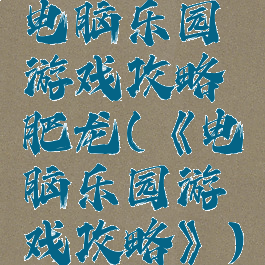 电脑乐园
游戏攻略
肥龙(《电
脑乐园游
戏攻略》)